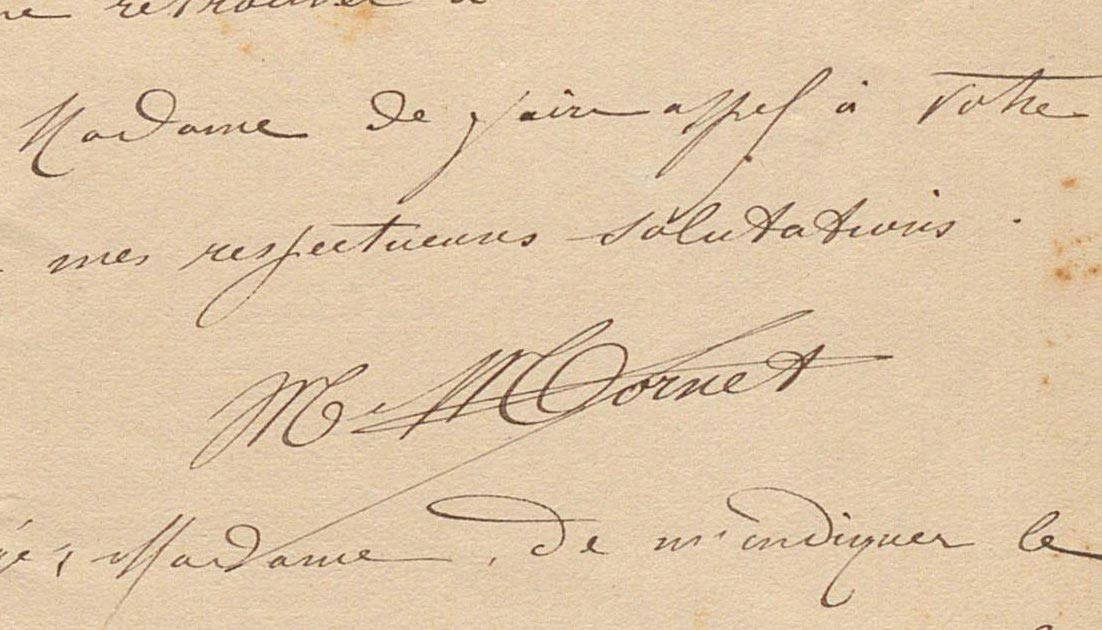 retrouver à
Madame de faire appel à votre
mes respectueuses salutations.
M Cornet
Madame, de m'indiquer le